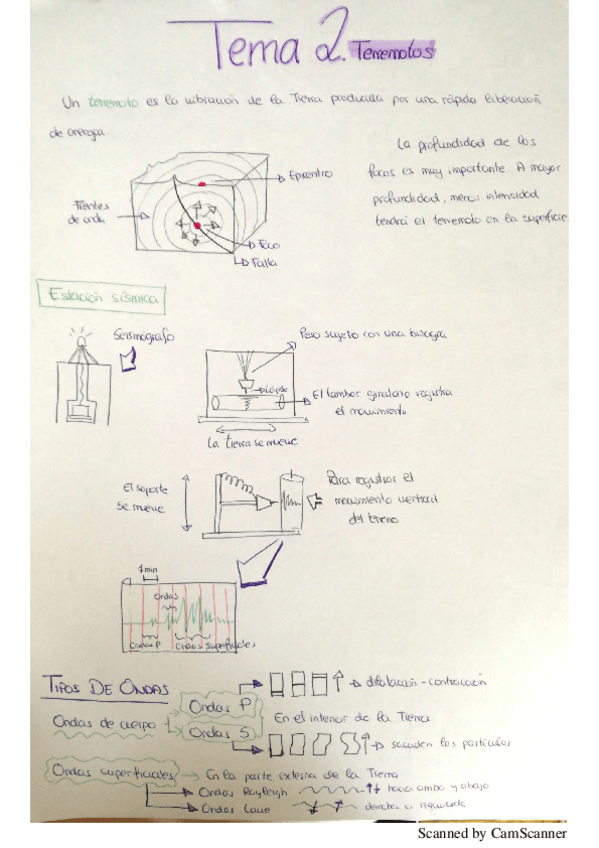 Tema 2. Terremotos
Un terremoto es la vibración de la Tierra producida por una rápida liberación
de energía.
La profundidad de los
focos es muy importante. A mayor
profundidad, menos intensidad
tendrá el terremoto en la superficie.
Epicentro
Frentes
de onda
Foco
Falla
Estación sísmica
Seismografo
Peso sujeto con una bisagra
El tambor giratorio registra
el movimiento
La tierra se mueve
El soporte
se mueve
Para registrar el
movimiento vertical
del terreno
1 min
Ondas
Ondas P
Ondas superficiales
TIPOS DE ONDAS
Ondas de cuerpo
Ondas P
dilatación - contracción
En el interior de la Tierra
Ondas S
sacuden las partículas
Ondas superficiales
En la parte externa de la Tierra
Ondas Rayleigh
hacia arriba y abajo
Ondas Love
derecha o izquierda
Scanned by CamScanner